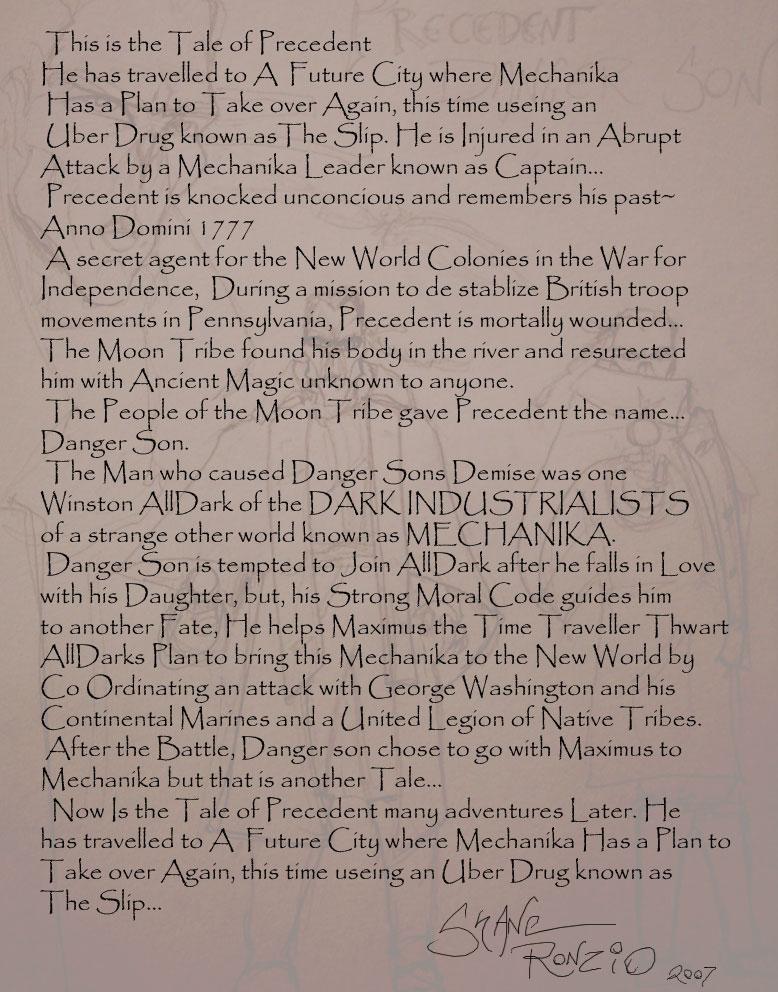 PRECEDENT
SON
This is the Tale of Precedent
He has travelled to A Future City where Mechanika
Has a Plan to Take over Again, this time useing an
Uber Drug known as The Slip. He is Injured in an Abrupt
Attack by a Mechanika Leader known as Captain...
Precedent is knocked unconcious and remembers his past~
Anno Domini 1777
A secret agent for the New World Colonies in the War for
Independence, During a mission to de stablize British troop
movements in Pennsylvania, Precedent is mortally wounded...
The Moon Tribe found his body in the river and resurected
him with Ancient Magic unknown to anyone.
The People of the Moon Tribe gave Precedent the name...
Danger Son.
The Man who caused Danger Sons Demise was one
Winston AllDark of the DARK INDUSTRIALISTS
of a strange other world known as MECHANIKA.
Danger Son is tempted to Join AllDark after he falls in Love
with his Daughter, but, his Strong Moral Code guides him
to another Fate, He helps Maximus the Time Traveller Thwart
AllDarks Plan to bring this Mechanika to the New World by
Co Ordinating an attack with George Washington and his
Continental Marines and a United Legion of Native Tribes.
After the Battle, Danger son chose to go with Maximus to
Mechanika but that is another Tale...
Now Is the Tale of Precedent many adventures Later. He
has travelled to A Future City where Mechanika Has a Plan to
Take over Again, this time useing an Uber Drug known as
The Slip...
SHANE
RONZIO 2007